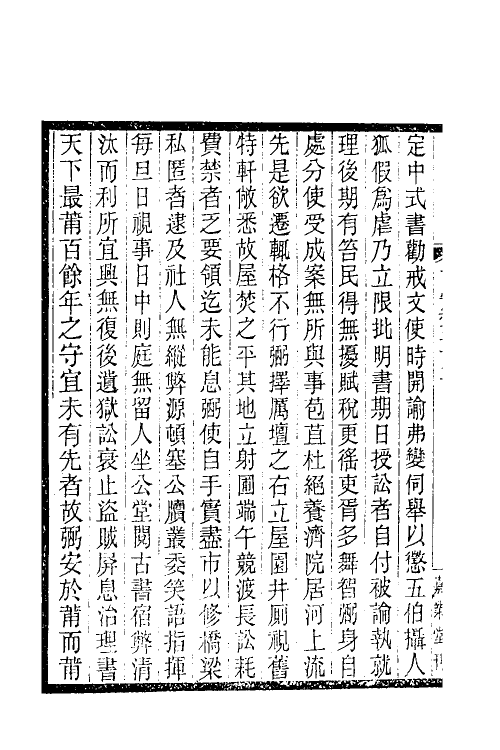 定中式書勸戒文使時開諭弗變伺舉以懲五伯攝人
狐假爲虐乃立限批明書期日授訟者自付被論執就
理後期有笞民得無擾賦稅更徭吏胥多舞智弼身自
處分使受成案無所與事苞苴杜絕養濟院居河上流
先是欲遷輒格不行弼擇厲壇之右立屋園井厠視舊
特軒敞悉故屋焚之平其地立射圃端午競渡長訟耗
費禁者乏要領迄未能息弼使自手實盡市以修橋梁
私匿者逮及社人無縱弊源頓塞公牘叢委笑語指揮
每旦日視事日中則庭無留人坐公堂閱古書宿弊清
汰而利所宜興無復後遺獄訟衰止盜賊屏息治理書
天下最莆百餘年之守宜未有先者故弼安於莆而莆